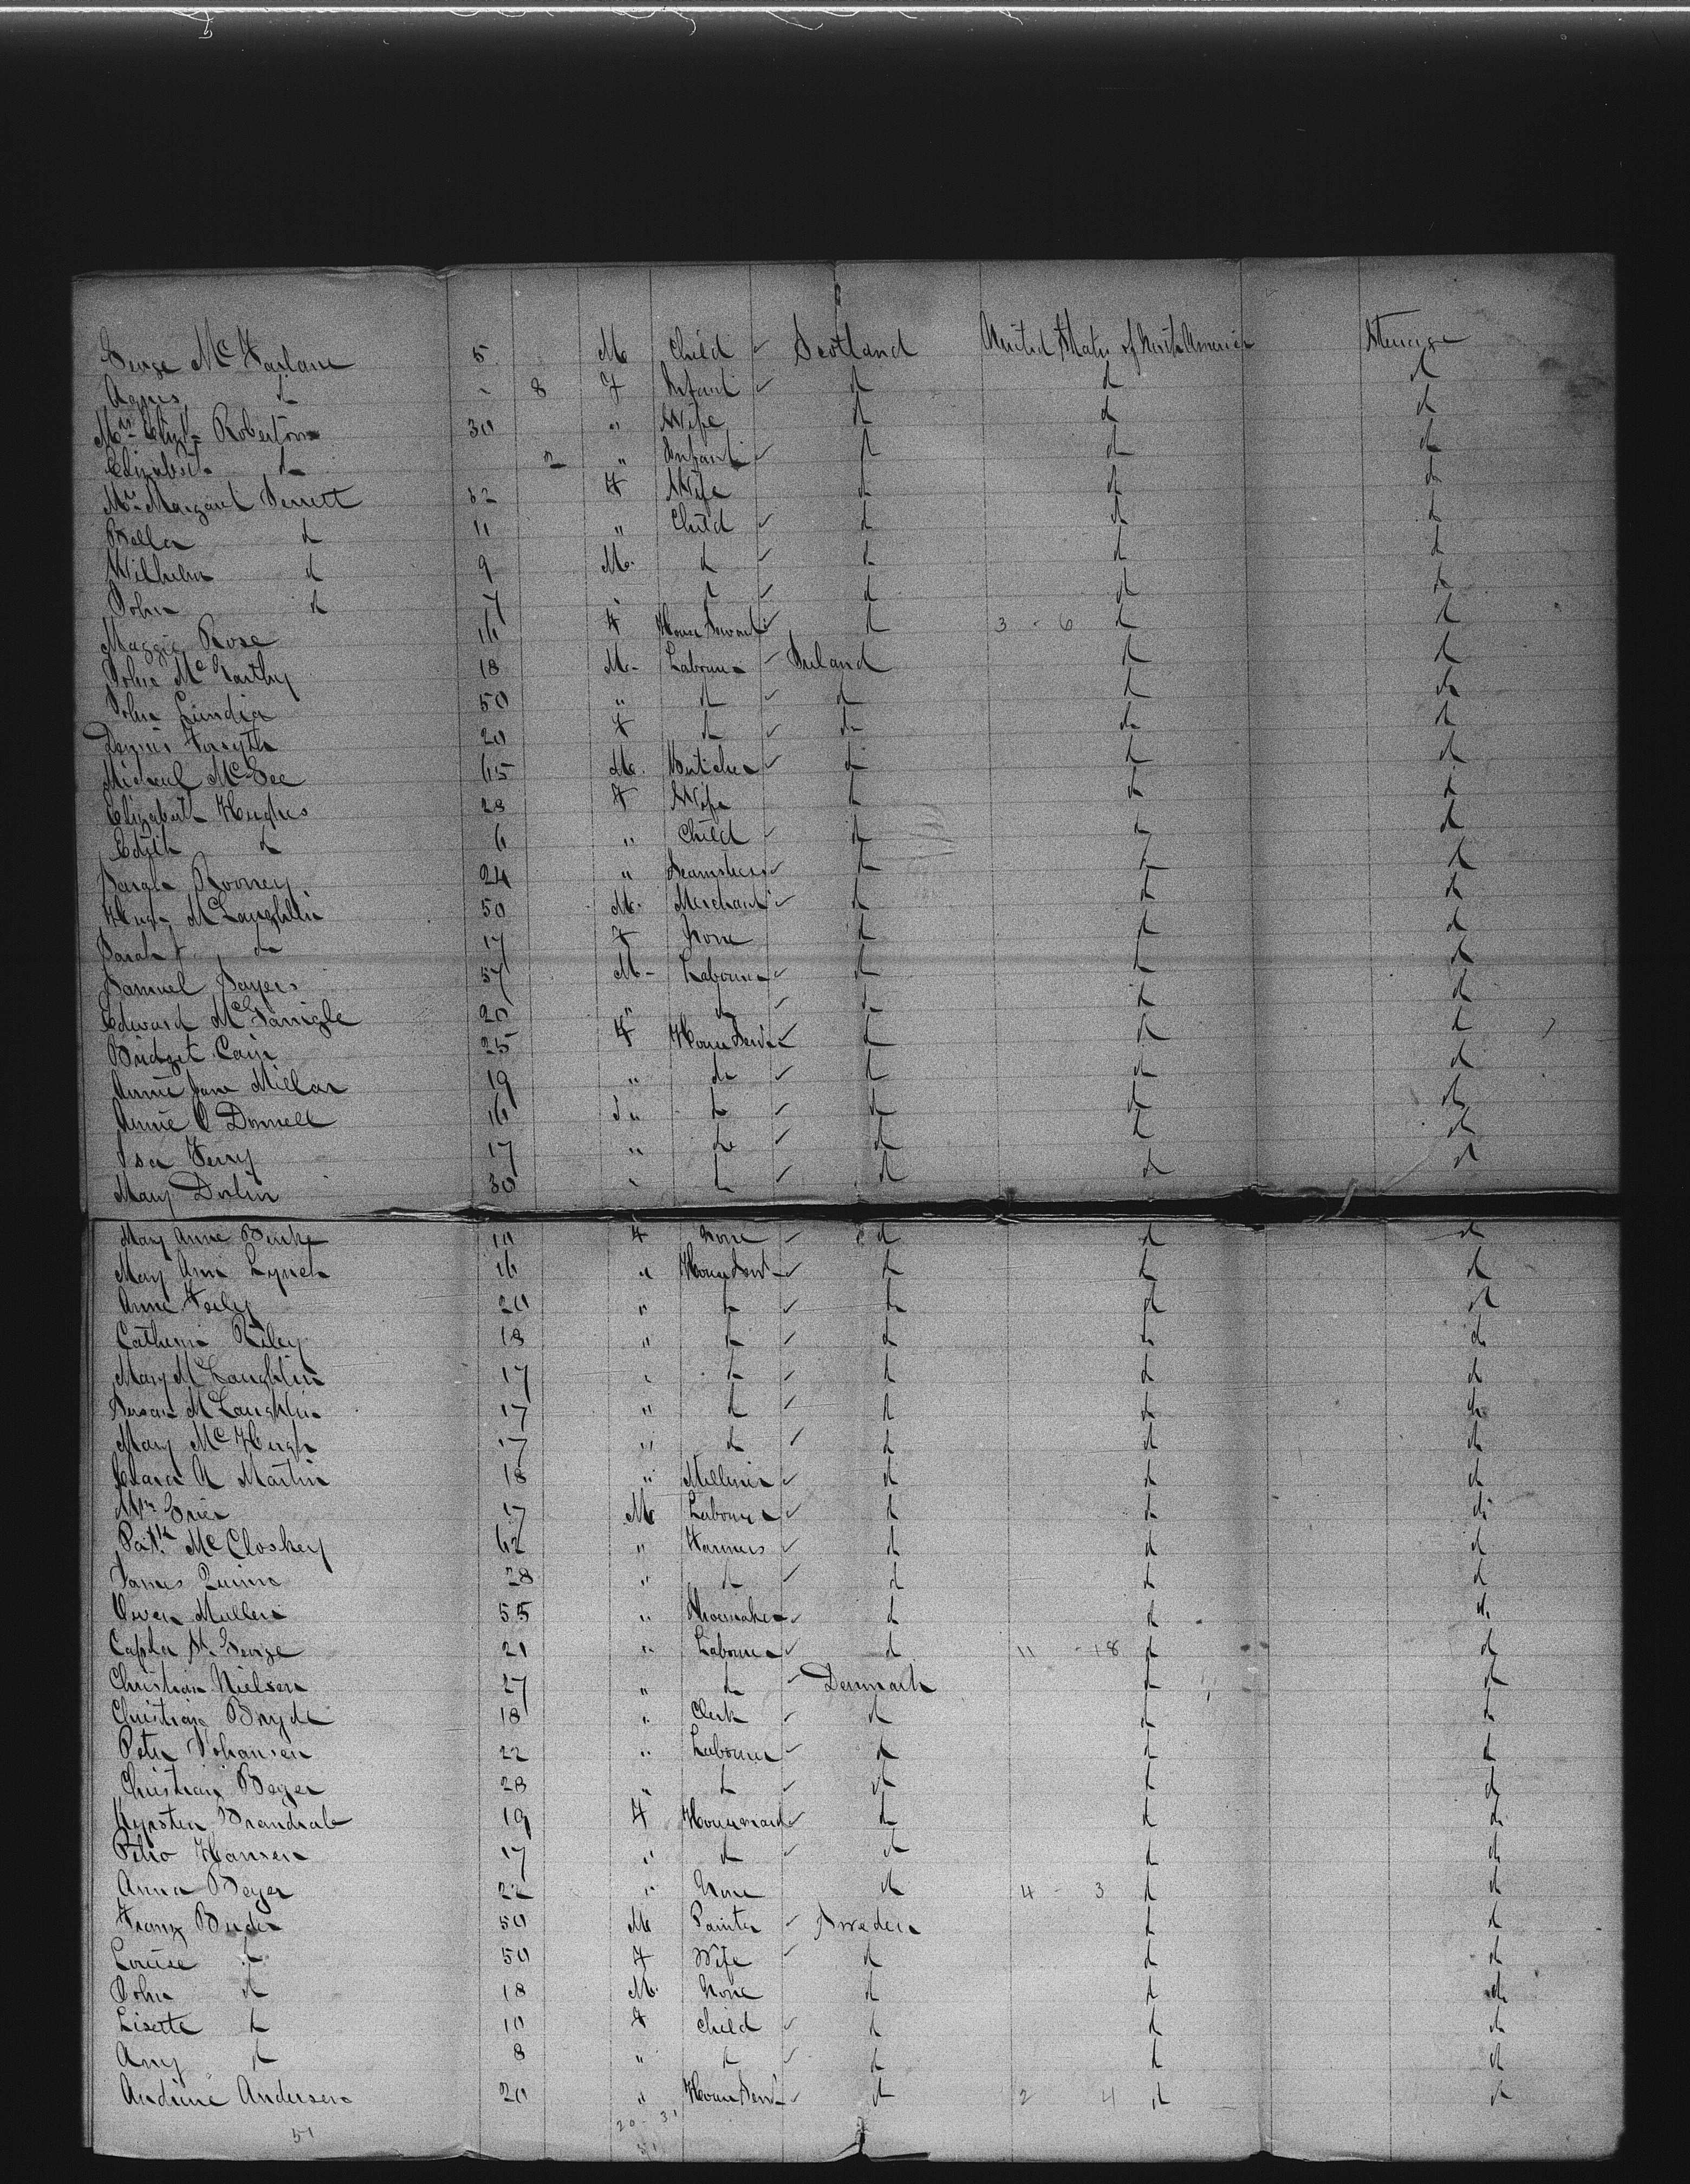 George McFarlane 5 M Child Scotland United States of North America Steerage
Agnes do - 8 F Infant do do do
Mrs Elizth Robertson 30 " Wife do do do
Elizabeth do 2 " Infant do do do
Mrs Margaret 32 F Wife do do do
Bella do 11 " Child do do do
Wilhelm do 9 M. do do do do
John do 7 do do do do
Maggie Rose 16 F House Servant do 3 - 6 do do
John McCarthy 18 M- Labourer Ireland do do
John 50 " do do do do
Dennis Forsyth 20 F do do do do
Michael McGee 65 M. Butcher do do do
Elizabeth Hughes 28 F Wife do do do
Edith do 6 " Child do do do
Rooney 24 " Seamstress do do do
Hugh McLaughlin 50 M. Merchant do do do
Sarah do 17 F None do do do
Samuel Sayers 57 M- Labourer do do do
Edward McGarrigle 20 " do do do do
Bridget Cain 25 F House Servt do do do
Annie Jane Millar 19 " do do do do
Annie O Donnell 16 " do do do do
Isa Ferry 17 " do do do do
Mary 30 " do do do do
Mary Anne Burke 10 F None do do do
Mary Ann Lynch 16 " House Servt do do do
Anne 20 " do do do do
Catherine Riley 18 " do do do do
Mary McLaughlin 17 " do do do do
Susan McLaughlin 17 " do do do do
Mary McHugh 17 " do do do do
Clara A Martin 18 " Milliner do do do
Wm Grier 17 M Labourer do do do
Patk McCloskey 62 " Farmers do do do
James Quinn 28 " do do do do
Owen Mullen 55 " Shoemaker do do do
St. George 21 " Labourer do 11 - 18 do do
Christian Nielsen 27 " do Denmark do do
Christian Bryde 18 " Clerk do do do
Peter Johansen 22 " Labourer do do do
Christian Beyer 28 " do do do do
Kyrsten 19 F Housemaid do do do
Hansen 17 " do do do do
Anna Beyer 22 " None do 4 - 3 do do
Franz 50 M Painter Sweden do do
Louise do 50 F Wife do do do
John do 18 M. None do do do
Lisette do 10 F Child do do do
Any do 8 " do do do do
Andrine Andersen 20 " House Servt do 2 4 do do
51 20 - 31
51